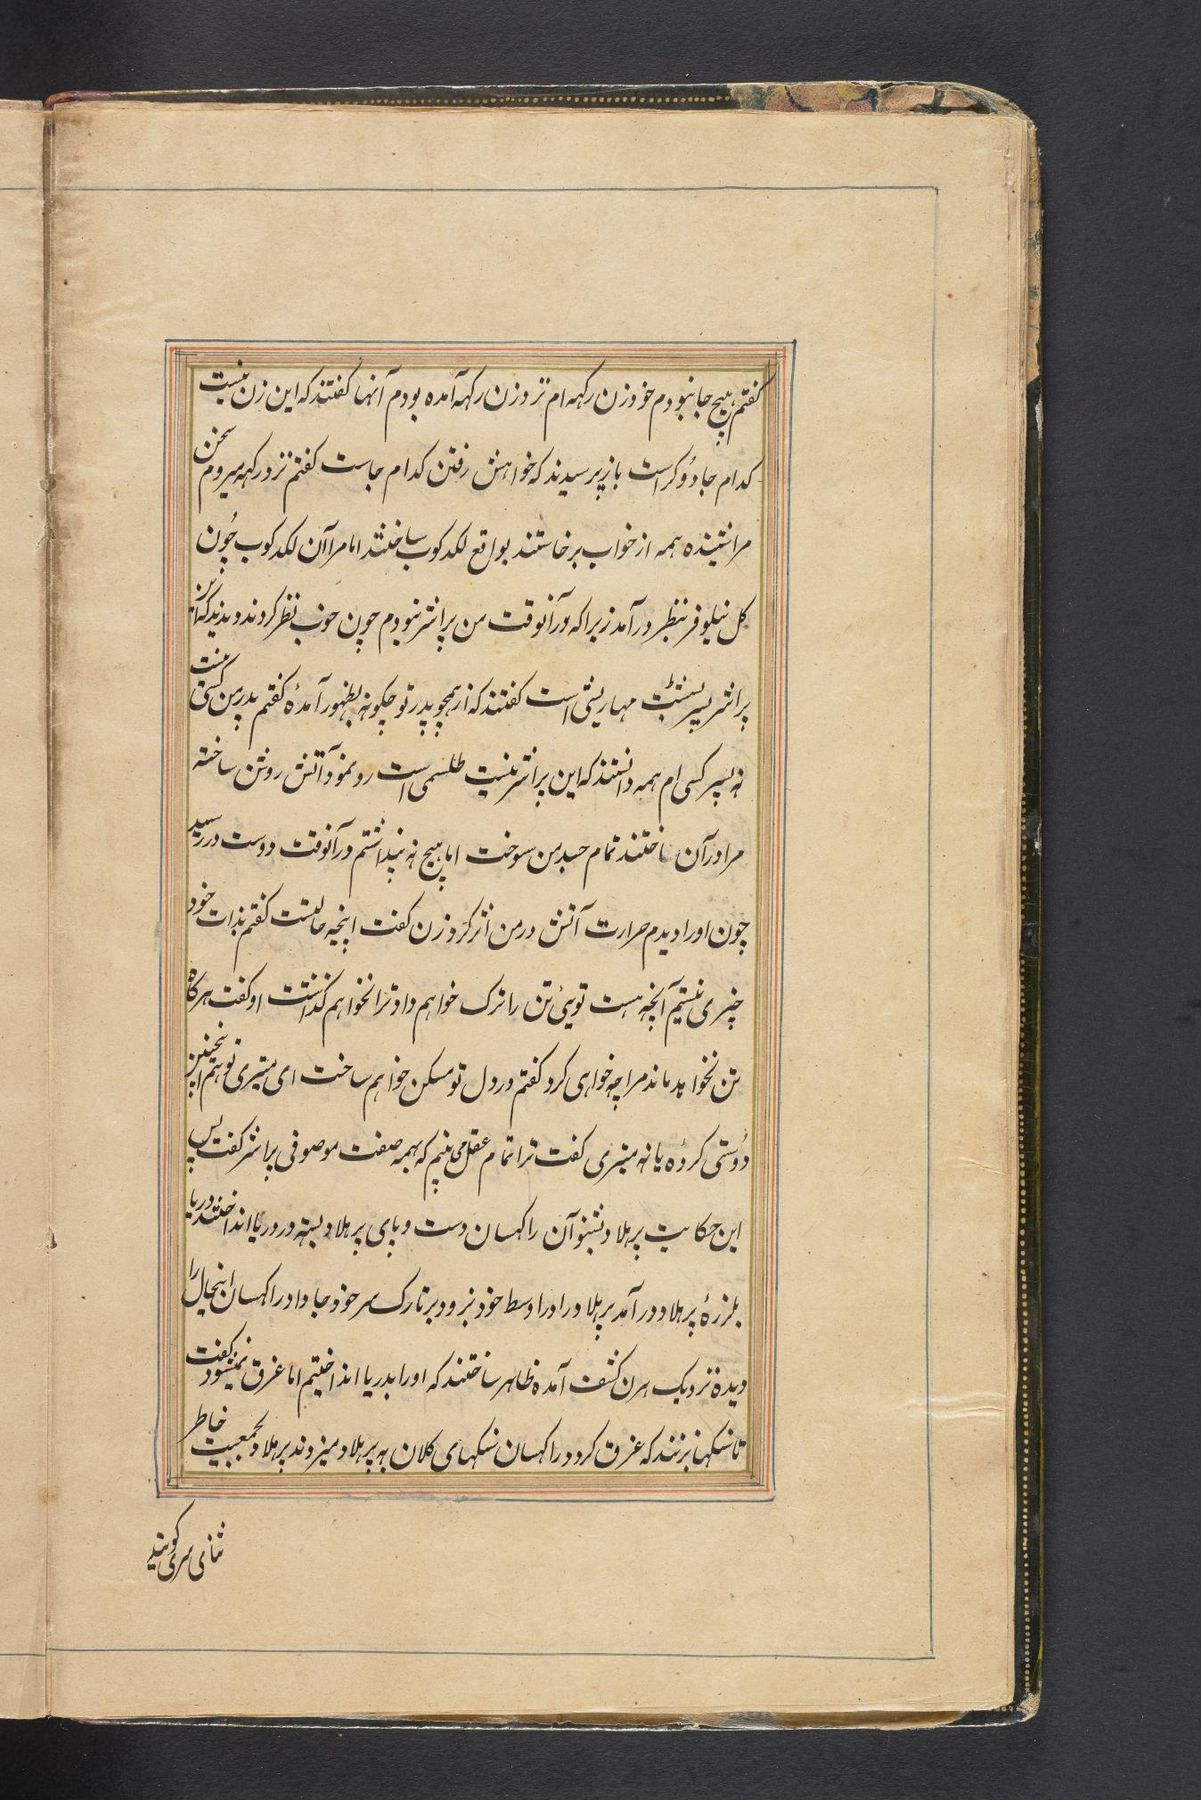 کفتم هیچ جا نبودم خود زن رکهه ام نزد زن رکهه آمده بودم آنها کفتند که این زن نیست
کدام جادوکر است باز پرسیدند که خواهش رفتن کدام جاست کفتم نزد رکهه میروم سخن
مرا شنیده همه از خواب برخاستند بواقع لکدکوب ساختند اما مرا آن لکدکوب چون
کل نیلوفر بنظر درآمد زیرا که درآنوقت من پراشر نبودم چون خوب نظر کردند دیدند که این
پراشر پسر بسشت مهاریشی است کفتند که از همچو پدر تو چکونه بظهور آمدهٔ کفتم پدر من کسی نیست
نه پسر کسی ام همه دانستند که این پراشر نیست طلسمی است رو نمود آتش روشن ساخته
مرا درآن انداختند تمام جسد من سوخت اما هیچ نه پنداشتم درآنوقت دوست در رسید
چون او را دیدم حرارت آتش در من اثر کرد زن کفت اینچه حالتست کفتم بذات خود
چیزی نیستم آنچه هست تویی تن را ترک خواهم داد ترا نخواهم کذاشت او کفت هرکاه
تن نخواهد ماند مرا چه خواهی کرد کفتم در دل تو مسکن خواهم ساخت ای میتری تو هم اینچنین
دوستی کردهٔ یا نه میتری کفت ترا تمام عقل می بینم که بهمه صفت موصوفی پراشر کفت پس
این حکایت پرهلاد بشنو آن راکهسان دست و پای پرهلاد بسته در دریا انداختند دریا
بلرزهٔ پرهلاد درآمد پرهلاد را در اوسط خود نبرد و بر تارک سر خود جا داد راکهسان اینحال را
دیده نزدیک هرن کشف آمده ظاهر ساختند که او را بدریا انداختیم اما غرق نمیشود کفت
تا سنکها بزنند که غرق کردد راکهسان سنکهای کلان به پرهلاد میزدند پرهلاد بجمعیت خاطر
ثنای سری کوبند